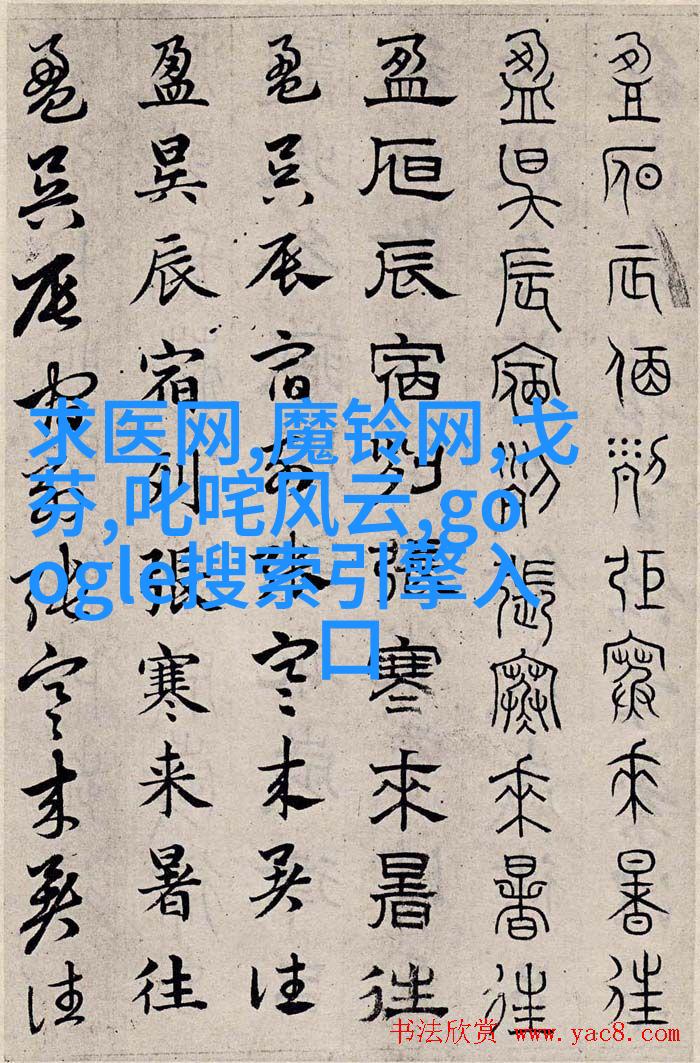 盈昃辰宿列張寒來暑往
盈昃辰宿列張寒來暑往
盈昃辰宿列張寒來暑往
盈昃辰宿列張寒来暑往
盈昃辰宿列張寒来暑往
盈昃辰宿列張寒来暑往
求医网,魔铃网,戈
芬,叱咤风云,go
ogle搜索引擎入
口
书法欣赏 www.yac8.com